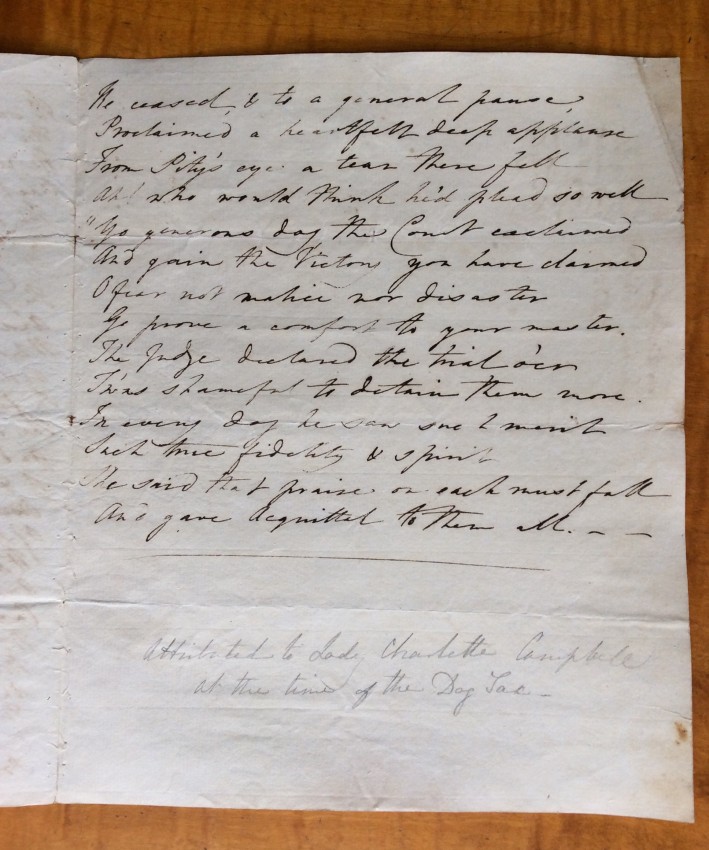 He ceased, & to a general pause,
Proclaimed a heartfelt deep applause
From Pity's eye a tear there fell
Ah! who would think he'd plead so well
"Go generous dog the Court exclaimed
And gain the Victory you have claimed
O fear not malice nor disaster
Go prove a comfort to your master.
The Judge declared the trial o'er
Twas shameful to detain them more.
In every dog he saw such merit
Such true fidelity & spirit
He said that praise on each must fall
And gave Acquittal to them all. – –
Attributed to Lady Charlotte Campbell
at the time of the Dog Tax –